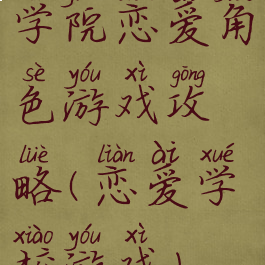 学院恋爱角
sè yóu xì gōng
色游戏攻
lüè liàn ài xué
略(恋爱学
xiào yóu xì
校游戏)